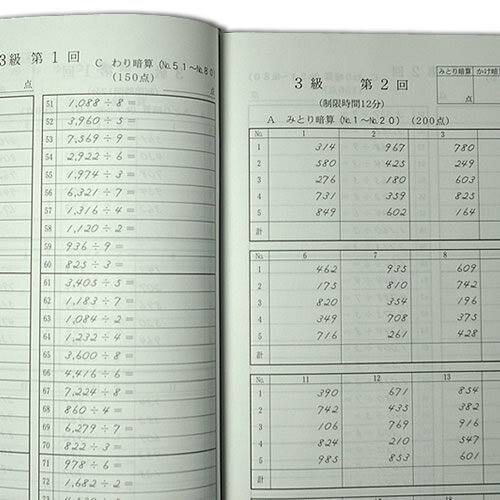 3級 第1回
点
C わり暗算 (№51～№80)
(150点)
点
51 1,088 ÷ 8 =
52 3,960 ÷ 5 =
53 7,569 ÷ 9 =
54 2,922 ÷ 6 =
55 1,974 ÷ 3 =
56 6,321 ÷ 7 =
57 1,316 ÷ 4 =
58 1,120 ÷ 2 =
59 936 ÷ 9 =
60 825 ÷ 3 =
61 3,405 ÷ 5 =
62 1,183 ÷ 7 =
63 1,084 ÷ 2 =
64 1,232 ÷ 4 =
65 3,600 ÷ 8 =
66 4,416 ÷ 6 =
67 7,224 ÷ 8 =
68 860 ÷ 4 =
69 6,279 ÷ 7 =
70 822 ÷ 3 =
71 978 ÷ 6 =
72 1,682 ÷ 2 =
3級 第2回
みとり暗算 かけ暗算
点
(制限時間12分)
A みとり暗算 (№1～№20) (200点)
№ 1 2 3
1 314 967 780
2 580 425 249
3 276 180 603
4 731 359 825
5 849 602 164
計
№ 6 7 8
1 462 935 609
2 175 810 742
3 820 354 196
4 349 708 375
5 716 261 428
計
№ 11 12 13
1 390 671 854
2 742 435 382
3 106 769 916
4 824 210 547
5 985 853 601
計